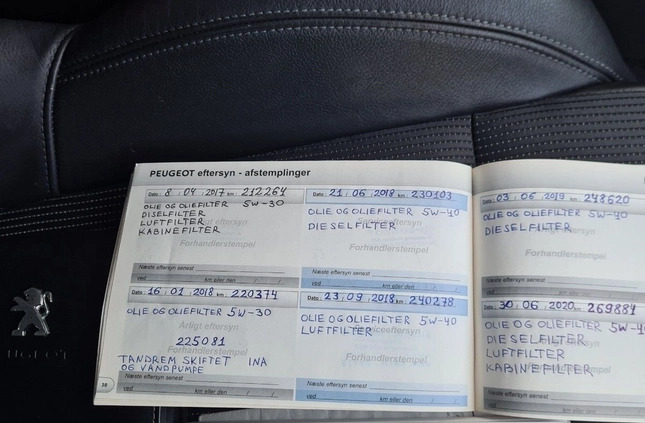 PEUGEOT eftersyn - afstemplinger
Dato: 8 / 04 / 2017 km: 212264
OLIE OG OLIEFILTER 5W-30
DISELFILTER
LUFTFILTER
KABINEFILTER
Årligt eftersyn
Forhandlerstempel
Næste eftersyn senest
ved km eller den / /
Dato: 16 / 01 / 2018 km: 220374
OLIE OG OLIEFILTER 5W-30
Årligt eftersyn
225081
TANDREM SKIFTET INA
OG VANDPUMPE
Forhandlerstempel
Næste eftersyn senest
ved km eller den / /
38
Dato: 21 / 06 / 2018 km: 230103
OLIE OG OLIEFILTER 5W-40
DIESELFILTER
Forhandlerstempel
Næste eftersyn senest
ved km eller den / /
Dato: 23 / 09 / 2018 km 240278
OLIE OG OLIEFILTER 5W-40
LUFTFILTER
Serviceeftersyn
Forhandlerstempel
Næste eftersyn senest
ved km eller den / /
Dato: 03 / 06 / 2019 km: 248620
OLIE OG OLIEFILTER 5W-40
DIESELFILTER
Forhandlerstempel
Næste eftersyn senest
ved
Dato: 30 / 06 / 2020 km: 269881
OLIE OG OLIEFILTER 5W-4
DIESELFILTER
LUFTFILTER
KABINEFILTER
Forhandlerstempel
Næste eftersyn senest
ved km eller den